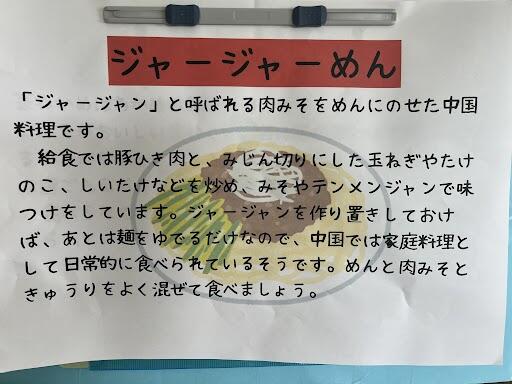 ジャージャーめん
「ジャージャン」と呼ばれる肉みそをめんにのせた中国
料理です。
給食では豚ひき肉と、みじん切りにした玉ねぎやたけ
のこ、しいたけなどを炒め、みそやテンメンジャンで味
つけをしています。ジャージャンを作り置きしておけ
ば、あとは麺をゆでるだけなので、中国では家庭料理と
して日常的に食べられているそうです。めんと肉みそと
きゅうりをよく混ぜて食べましょう。